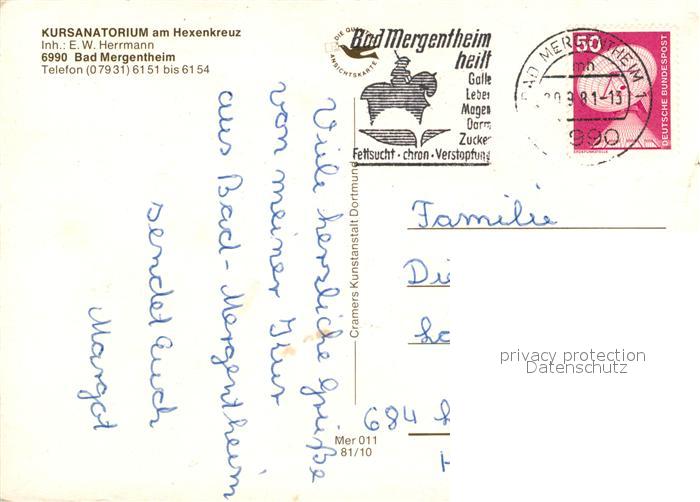 KURSANATORIUM am Hexenkreuz
Inh.: E. W. Herrmann
6990 Bad Mergentheim
Telefon (07931) 6151 bis 6154
Viele herzliche Grüße
von meiner Kur
aus Bad-Mergentheim
sendet Euch
Margot
Cramers Kunstanstalt Dortmund
Mer 011
81/10
ANSICHTSKARTE
Bad Mergentheim
heilt
Galle
Leber
Magen
Darm
Zucker
Fettsucht · chron · Verstopfung
BAD MERGENTHEIM 1
mh
9.81-13
990
50
DEUTSCHE BUNDESPOST
Familie
Di
684
privacy protection
Datenschutz